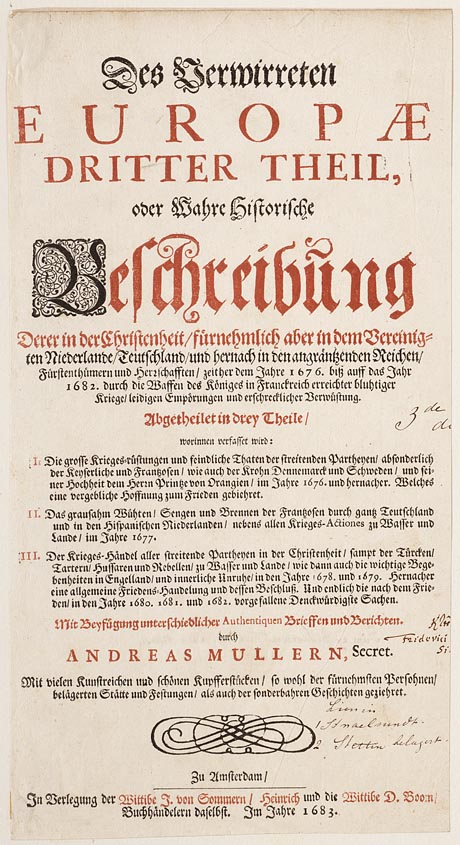 Des Verwirreten
EUROPÆ
DRITTER THEIL,
oder Wahre Historische
Beschreibūng
Derer in der Christenheit/ fürnehmlich aber in dem Vereinig-
ten Niederlande/ Teutschland/ und hernach in den angräntzenden Reichen/
Fürstenthümern und Herzschafften/ zeither dem Jahre 1676. biß auff das Jahr
1682. durch die Waffen des Königes in Franckreich erreichter bluhtiger
Kriege/ leidigen Empörungen und erschrecklicher Verwüstung.
Abgetheilet in drey Theile/
worinnen verfasset wird:
I. Die grosse Krieges-rüstungen und feindliche Thaten der streitenden Partheyen/ absonderlich
der Keyserliche und Frantzosen/ wie auch der Krohn Dennemarck und Schweden/ und sei-
ner Hochheit dem Herrn Printze von Orangien/ im Jahre 1676. und hernacher. Welches
eine vergebliche Hoffnung zum Frieden gebiehret.
II. Das grausahm Wühten/ Sengen und Brennen der Frantzosen durch gantz Teutschland
und in den Hispanischen Niederlanden/ nebens allen Krieges-Actiones zu Wasser und
Lande/ im Jahre 1677.
III. Der Krieges-Händel aller streitende Partheyen in der Christenheit/ sampt der Türcken/
Tartern/ Hussaren und Rebellen/ zu Wasser und Lande/ wie dann auch die wichtige Bege-
benheiten in Engelland/ und innerliche Unruhe/ in den Jahre 1678. und 1679. Hernacher
eine allgemeine Friedens-Handelung und dessen Beschluß. Und endlich die nach dem Frie-
den/ in den Jahre 1680. 1681. und 1682. vorgefallene Denckwürdigste Sachen.
Mit Beyfügung unterschiedlicher Authentiquen Brieffen und Berichten.
durch
ANDREAS MULLERN, Secret.
Mit vielen Kunstreichen und schönen Kupfferstücken/ so wohl der fürnehmsten Persohnen/
belägerten Stätte und Festungen/ als auch der sonderbahren Geschichten geziehret.
3 de
1 Straelsundt.
2 Stettin belagert.
Zu Amsterdam/
In Verlegung der Wittibe J. von Sommern/ Heinrich und die Wittibe D. Boom/
Buchhändelern daselbst. Im Jahre 1683.